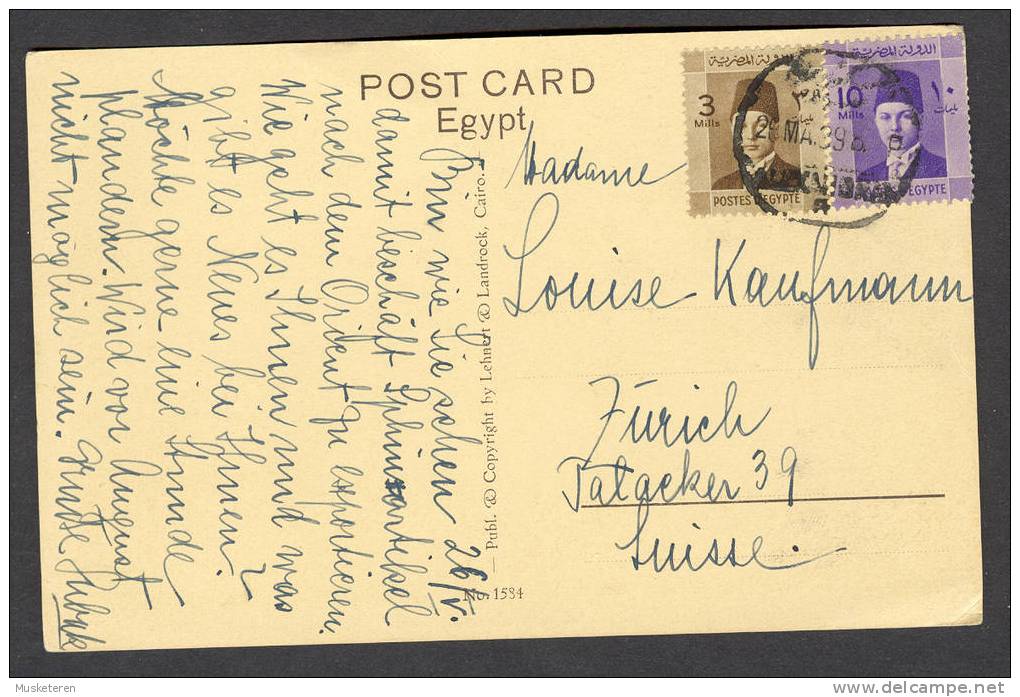 POST CARD
Egypt
الدولة المصرية
3
Mills
POSTES D'EGYPTE
الدولة المصرية
10
Mills
١٠
مليمات
EGYPTE
MA.39
Madame
Louise Kaufmann
Zürich
Talacker 39
Suisse.
Publ. & Copyright by Lehnert & Landrock, Cairo.
No. 1584
26/V.
Bin wie Sie sehen
damit beschäft
nach dem Orient zu exportieren.
Wie geht es Ihnen und was
gibt es Neues bei Ihnen?
Möchte gerne eine Stunde
plaudern. Wird vor August
nicht möglich sein. Grüsse
Musketeren
delcampe.net